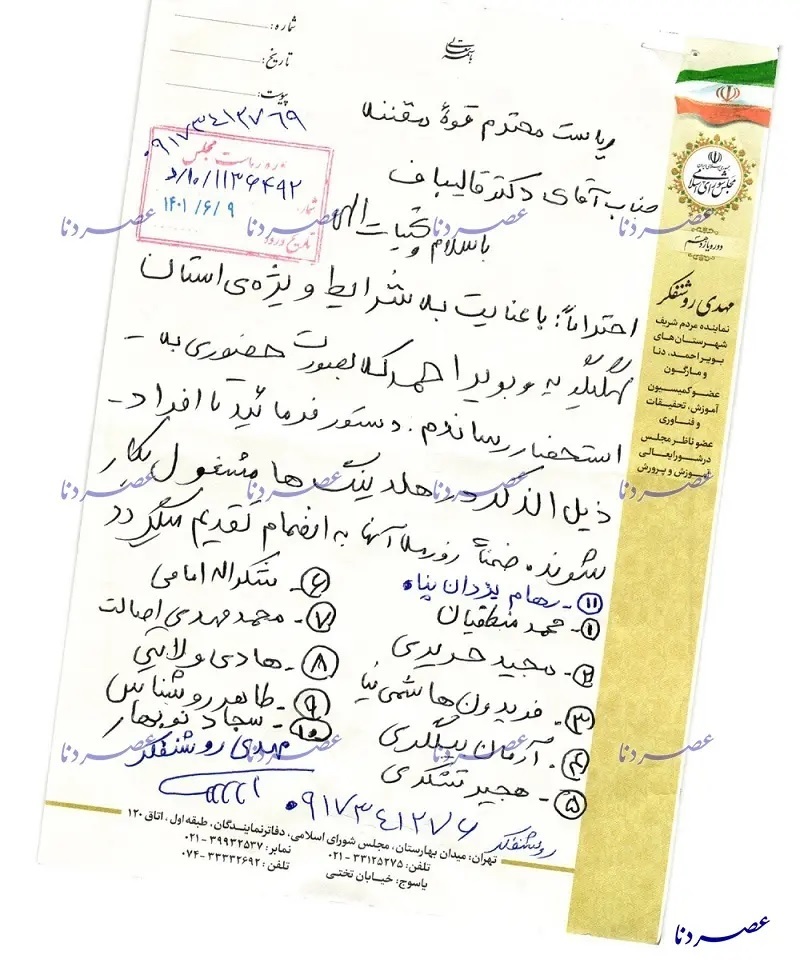 باسمه تعالی
شماره:
تاریخ:
پیوست:
۰۹۱۷۳۴۱۲۷۶۹
حوزه ریاست مجلس
شماره: د/۱۰/۱۱۳۶۴۹۲
۱۴۰۱/۶/۹
تاریخ ورود:
ریاست محترم قوهٔ مقننه
جناب آقای دکتر قالیباف
با سلام و تحیات الهی
احتراماً؛ با عنایت به شرایط ویژه‌ی استان
کهگیلویه و بویراحمد که بصورت حضوری به -
استحضار رساندم. دستور فرمائید تا افراد -
ذیل الذکر در هلدینگ ها مشغول بکار
شوند. ضمناً رزومه آنها به انضمام تقدیم میگردد
۱۱- رهام یزدان پناه
۱- محمد منطقیان
۲- مجید حریری
۳- فریدون هاشمی نیا
۴- آرمان بیگلری
۵- هجیر تشکری
۶- شکراله امامی
۷- محمدمهدی اصالت
۸- هادی ولایتی
۹- طاهر روشناس
۱۰- سجاد نوبهار
مهدی روشنفکر
۰۹۱۷۳۴۱۲۷۶
روشنفکر
مجلس شورای اسلامی
دوره یازدهم
مهدی روشنفکر
نماینده مردم شریف
شهرستان‌های
بویراحمد، دنا
و مارگون
عضو کمیسیون
آموزش، تحقیقات
و فناوری
عضو ناظر مجلس
در شورایعالی
آموزش و پرورش
تهران: میدان بهارستان، مجلس شورای اسلامی، دفاتر نمایندگان، طبقه اول، اتاق ۱۲۰
تلفن: ۳۳۱۲۵۲۷۵-۰۲۱ نمابر: ۳۹۹۳۲۵۳۷-۰۲۱
یاسوج: خیابان تختی تلفن: ۳۳۳۳۲۶۹۲-۰۷۴
عصر دنا عصر دنا عصر دنا عصر دنا
عصر دنا عصر دنا عصر دنا عصر دنا
عصر دنا عصر دنا عصر دنا عصر دنا
عصر دنا